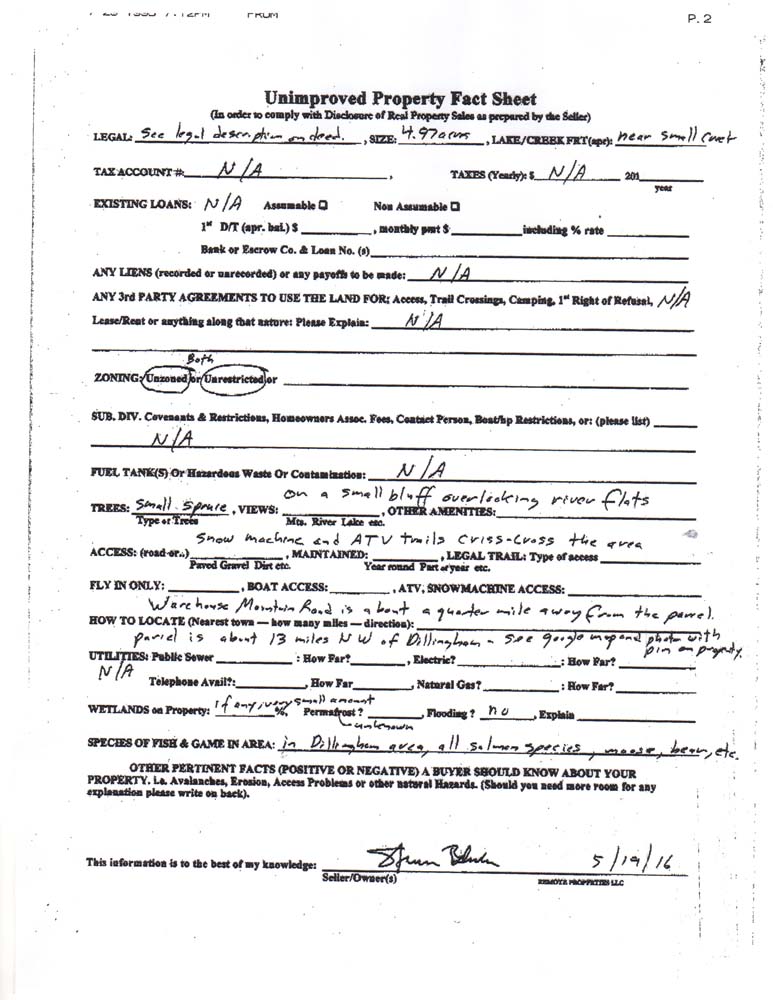 P. 2
FROM
Unimproved Property Fact Sheet
(In order to comply with Disclosure of Real Property Sales as prepared by the Seller)
LEGAL: See legal description on deed. , SIZE: 4.97 acres , LAKE/CREEK FRT(apr): near small
TAX ACCOUNT #: N/A , TAXES (Yearly): $ N/A 201
year
EXISTING LOANS: N/A Assumable ☐ Non Assumable ☐
1st D/T (apr. bal.) $ , monthly pmt $ including % rate
Bank or Escrow Co. & Loan No. (s)
ANY LIENS (recorded or unrecorded) or any payoffs to be made: N/A
ANY 3rd PARTY AGREEMENTS TO USE THE LAND FOR; Access, Trail Crossings, Camping, 1st Right of Refusal, N/A
Lease/Rent or anything along that nature: Please Explain: N/A
Both
ZONING: Unzoned or Unrestricted or
SUB. DIV. Covenants & Restrictions, Homeowners Assoc. Fees, Contact Person, Boat/hp Restrictions, or: (please list)
N/A
FUEL TANK(S) Or Hazardous Waste Or Contamination: N/A
on a small bluff overlooking river flats
TREES: Small Spruce , VIEWS: , OTHER AMENITIES:
Type or Trees Mts. River Lake etc.
Snow machine and ATV trails criss-cross the area
ACCESS: (road-or..) , MAINTAINED: , LEGAL TRAIL: Type of access
Paved Gravel Dirt etc. Year round Part of year etc.
FLY IN ONLY: , BOAT ACCESS: , ATV, SNOWMACHINE ACCESS:
Warehouse Mountain Road is about a quarter mile away from the parcel.
HOW TO LOCATE (Nearest town — how many miles — direction):
parcel is about 13 miles NW of Dillingham - see google map and photo with
pin on property.
UTILITIES: Public Sewer : How Far? , Electric? : How Far?
N/A
Telephone Avail?: , How Far , Natural Gas? : How Far?
if any, very small amount
WETLANDS on Property: %, Permafrost ? , Flooding ? no , Explain
unknown
SPECIES OF FISH & GAME IN AREA: in Dillingham area, all salmon species, moose, bear, etc.
OTHER PERTINENT FACTS (POSITIVE OR NEGATIVE) A BUYER SHOULD KNOW ABOUT YOUR
PROPERTY. i.e. Avalanches, Erosion, Access Problems or other natural Hazards. (Should you need more room for any
explanation please write on back).
This information is to the best of my knowledge: 5/19/16
Seller/Owner(s) REMOTE PROPERTIES LLC